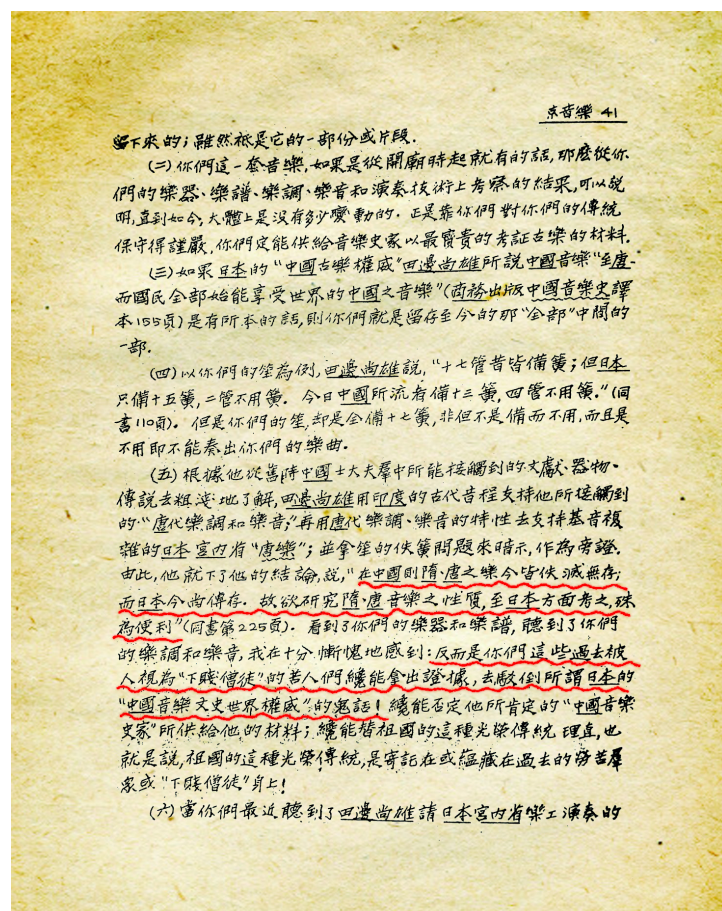 京音樂 41
留下來的；雖然祇是它的一部份或片段．
(二)你們這一套音樂，如果是從開廟時起就有的話，那麼從你
們的樂器、樂譜、樂調、樂音和演奏技術上考察的結果，可以說
明，直到如今，大體上是沒有多少變動的．正是靠你們對你們的傳統
保守得謹嚴，你們定能供給音樂史家以最寶貴的考証古樂的材料．
(三)如果日本的“中國古樂權威”田邊尚雄所說中國音樂“至唐-
而國民全部始能享受世界的中國之音樂”(商務出版中國音樂史譯
本155頁)是有所本的話，則你們就是留存至今的那“全部”中間的
一部．
(四)以你們的笙為例，田邊尚雄說，“十七管昔皆備簧；但日本
只備十五簧，二管不用簧．今日中國所流者備十三簧，四管不用簧．”(同
書110頁)．但是你們的笙，却是全備十七簧，非但不是備而不用，而且是
不用即不能奏出你們的樂曲．
(五)根據他從舊時中國士大夫羣中所能接觸到的文獻、器物、
傳說去粗淺地了解，田邊尚雄用印度的古代音程支持他所接觸到
的“唐代樂調和樂音；”再用唐代樂調、樂音的特性去支持基音複
雜的日本宮內省“唐樂”；並拿笙的佚簧問題來暗示，作為旁證．
由此，他就下了他的結論，說，“在中國則隋、唐之樂今皆佚滅無存；
而日本今尚傳存．故欲研究隋、唐音樂之性質，至日本方面考之，殊
為便利”(同書第225頁)．看到了你們的樂器和樂譜，聽到了你們
的樂調和樂音，我在十分慚愧地感到：反而是你們這些過去被
人視為“下賤僧徒”的苦人們纔能拿出證據，去敲倒所謂日本的
“中國音樂文史世界權威”的鬼話！纔能否定他所肯定的“中國音樂
史家”所供給他的材料；纔能替祖國的這種光榮傳統理直，也
就是說，祖國的這種光榮傳統，是寄託在或蘊藏在過去的勞苦羣
衆或“下賤僧徒”身上！
(六)當你們最近聽到了田邊尚雄請日本宮內省樂工演奏的